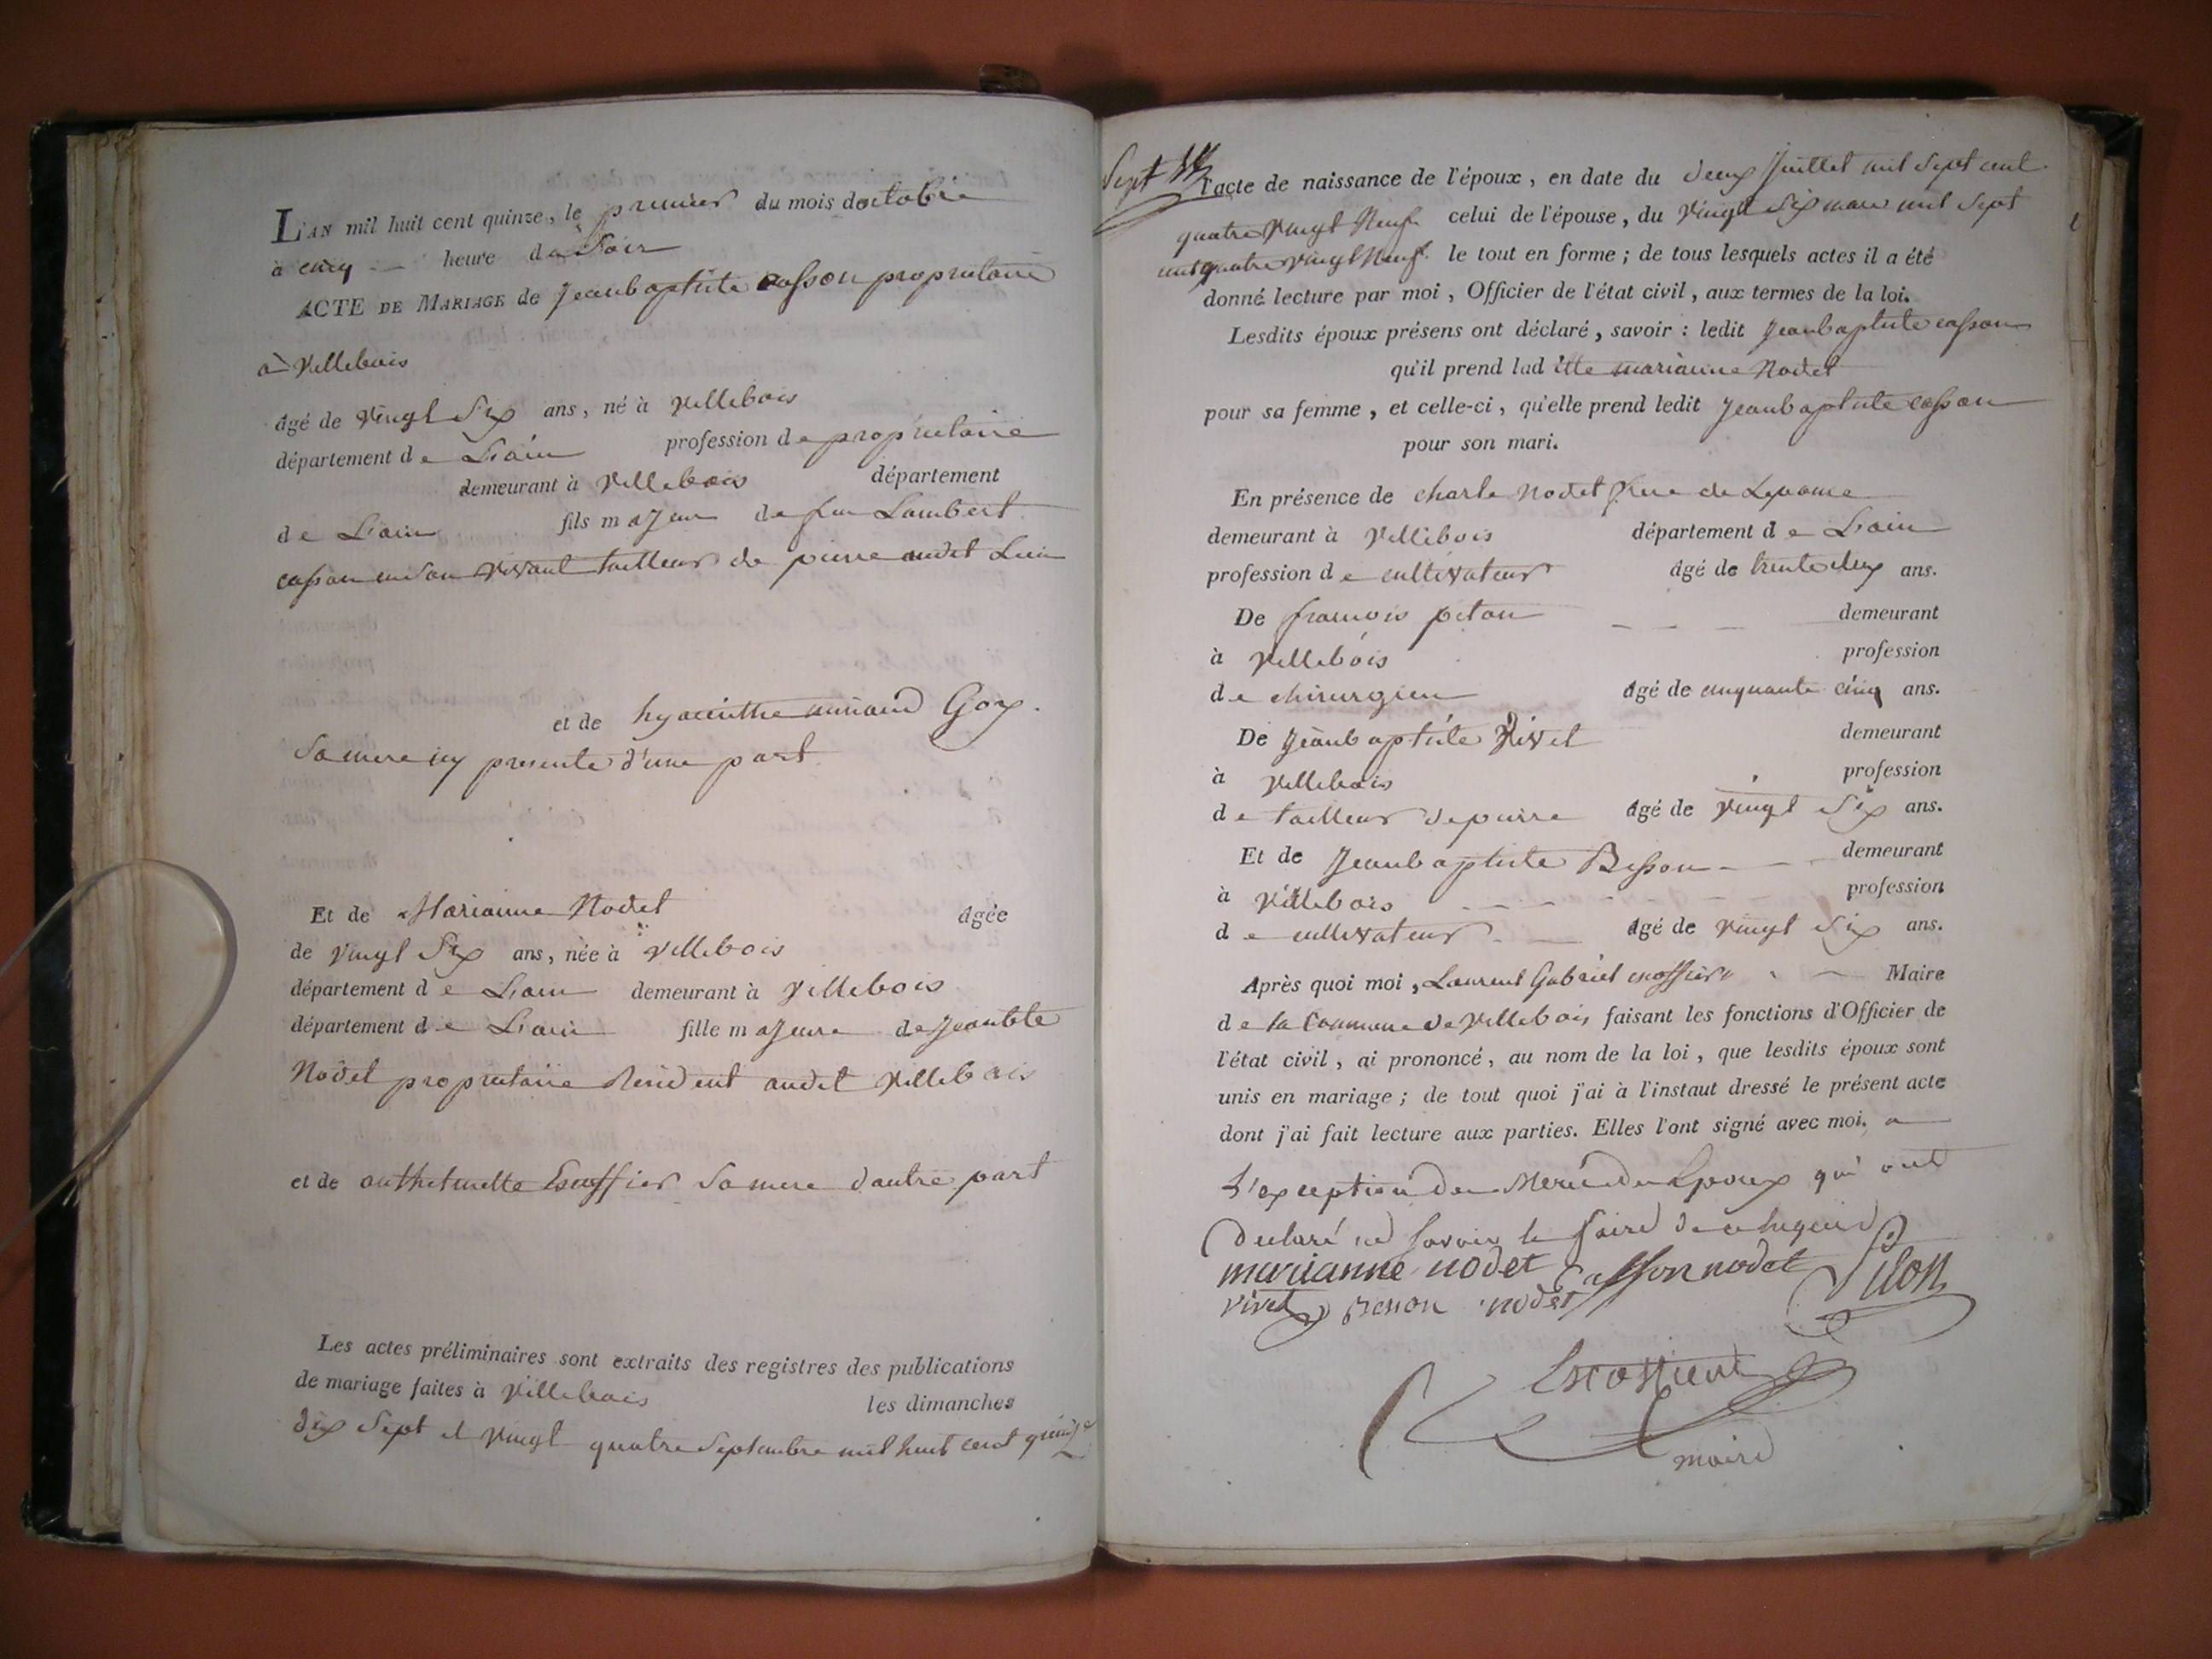 L'AN mil huit cent quinze, le premier du mois doctobre
à cinq heure du Soir
ACTE DE MARIAGE de Jeanbaptiste Casson proprietaire
à Villebois
âgé de vingt Six ans, né à Villebois
département de L'ain profession de propriétaire
demeurant à Villebois département
de L'ain fils majeur de feu Lambert
casson en son vivant tailleur de pierre audit Lieu
et de hyacinthe Goy
Sa mere icy presente d'une part
Et de Marianne Nodet âgée
de vingt Six ans, née à Villebois
département de L'ain demeurant à Villebois
département de L'ain fille majeure de Jean
Nodet proprietaire Resident audit Villebois
et de Escoffier Sa mere d'autre part
Les actes préliminaires sont extraits des registres des publications
de mariage faites à Villebois les dimanches
dix Sept et vingt quatre Septembre mil huit cent quinze
Sept
l'acte de naissance de l'époux, en date du deux Juillet mil Sept cent
quatre vingt Neuf celui de l'épouse, du vingt Six mars mil Sept
cent quatre vingt Neuf le tout en forme; de tous lesquels actes il a été
donné lecture par moi, Officier de l'état civil, aux termes de la loi.
Lesdits époux présens ont déclaré, savoir : ledit Jeanbaptiste casson
qu'il prend lad itte marianne Nodet
pour sa femme, et celle-ci, qu'elle prend ledit Jeanbaptiste casson
pour son mari.
En présence de charle Nodet frere de Lepouse
demeurant à Villebois département de L'ain
profession de cultivateur âgé de trente deux ans.
De francois piton demeurant
à Villebois profession
de chirurgien âgé de cinquante cinq ans.
De Jeanbaptiste Vivet demeurant
à Villebois profession
de tailleur de pierre âgé de vingt Six ans.
Et de Jeanbaptiste Besson demeurant
à Villebois profession
de cultivateur âgé de vingt Six ans.
Après quoi moi, Laurent Gabriel escoffier Maire
de la Commune de Villebois faisant les fonctions d'Officier de
l'état civil, ai prononcé, au nom de la loi, que lesdits époux sont
unis en mariage; de tout quoi j'ai à l'instant dressé le présent acte
dont j'ai fait lecture aux parties. Elles l'ont signé avec moi. a
L'exception de la Mere de Lepoux qui ont
declaré ne Savoir le faire de ce requis
marianne nodet Casson nodet Piton
vivet Besson nodet
Escoffier
maire